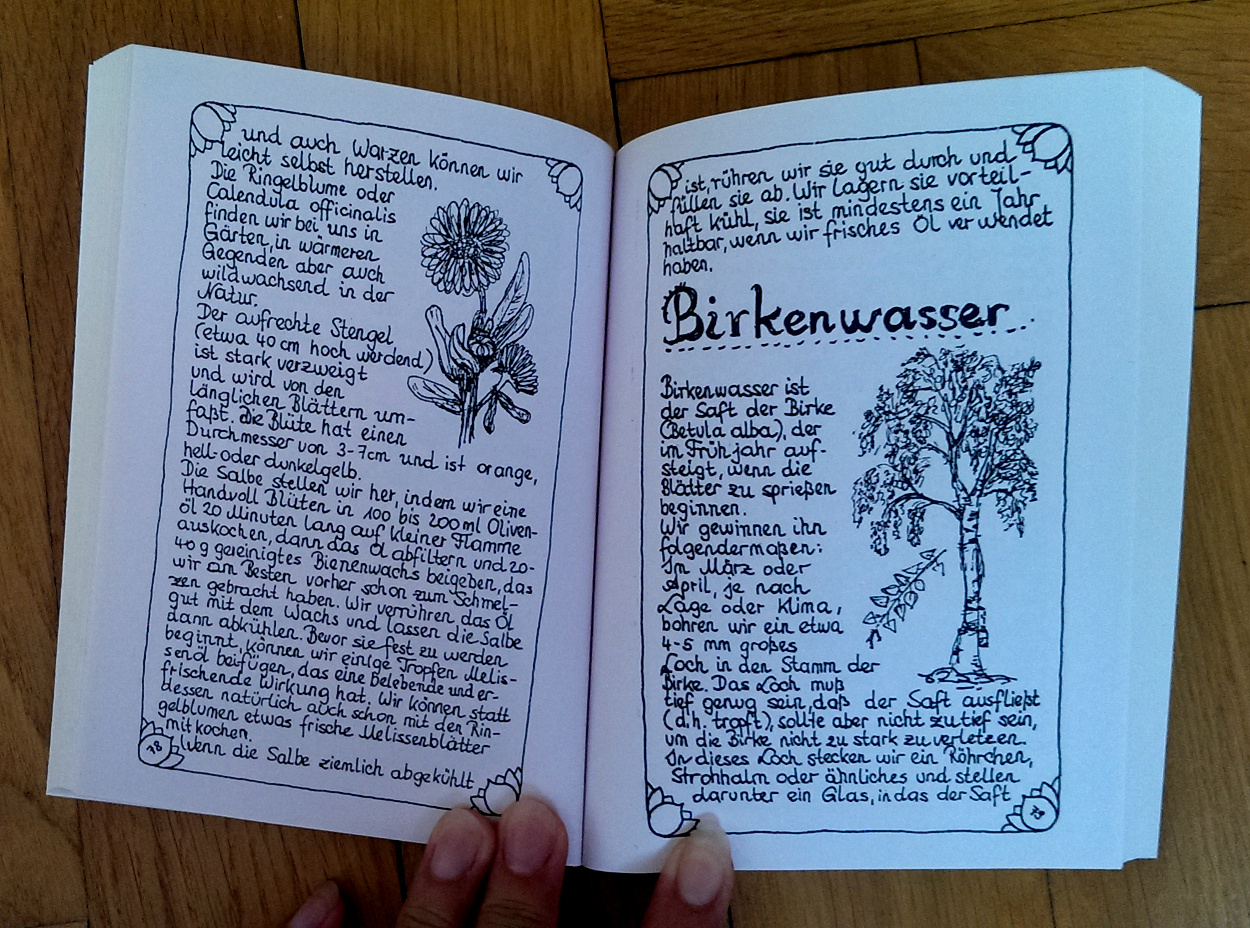 und auch Warzen können wir
leicht selbst herstellen.
Die Ringelblume oder
Calendula officinalis
finden wir bei uns in
Gärten, in wärmeren
Gegenden aber auch
wildwachsend in der
Natur.
Der aufrechte Stengel
(etwa 40 cm hoch werdend)
ist stark verzweigt
und wird von den
länglichen Blättern um-
faßt. Die Blüte hat einen
Durchmesser von 3-7cm und ist orange,
hell- oder dunkelgelb.
Die Salbe stellen wir her, indem wir eine
Handvoll Blüten in 100 bis 200 ml Oliven-
öl 20 Minuten lang auf kleiner Flamme
auskochen, dann das Öl abfiltern und 20-
40 g gereinigtes Bienenwachs beigeben, das
wir am Besten vorher schon zum Schmel-
zen gebracht haben. Wir verrühren das Öl
gut mit dem Wachs und lassen die Salbe
dann abkühlen. Bevor sie fest zu werden
beginnt, können wir einige Tropfen Melis-
senöl beifügen, das eine Belebende und er-
frischende Wirkung hat. Wir können statt
dessen natürlich auch schon mit den Rin-
gelblumen etwas frische Melissenblätter
mitkochen.
Wenn die Salbe ziemlich abgekühlt
28
ist, rühren wir sie gut durch und
füllen sie ab. Wir lagern sie vorteil-
haft kühl, sie ist mindestens ein Jahr
haltbar, wenn wir frisches Öl verwendet
haben.
Birkenwasser
Birkenwasser ist
der Saft der Birke
(Betula alba), der
im Frühjahr auf-
steigt, wenn die
Blätter zu sprießen
beginnen.
Wir gewinnen ihn
folgendermaßen:
Im März oder
April, je nach
Lage oder Klima,
bohren wir ein etwa
4-5 mm großes
Loch in den Stamm der
Birke. Das Loch muß
tief genug sein, daß der Saft ausfließt
(d.h. tropft), sollte aber nicht zu tief sein,
um die Birke nicht zu stark zu verletzen.
In dieses Loch stecken wir ein Röhrchen,
Strohhalm oder ähnliches und stellen
darunter ein Glas, in das der Saft